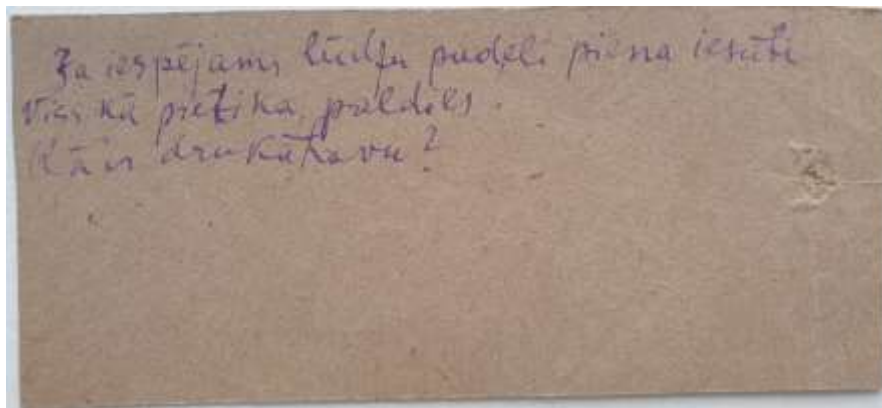 Ja iespējams, lūdzu pudeli piena iesūti
Viss kā pietika, paldies.
Kā ir drukātavu?